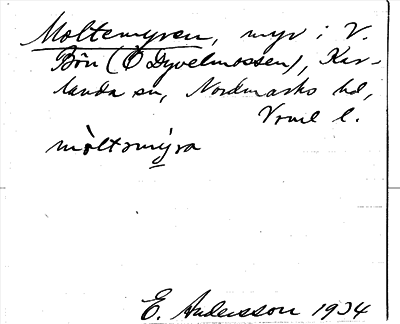 Moltemyren, myr i V.
Bön (Ö Dyvelmossen), Kar-
landa sn, Nordmarks hd,
Vrml l.
mòltomy̠ra
E. Andersson 1934